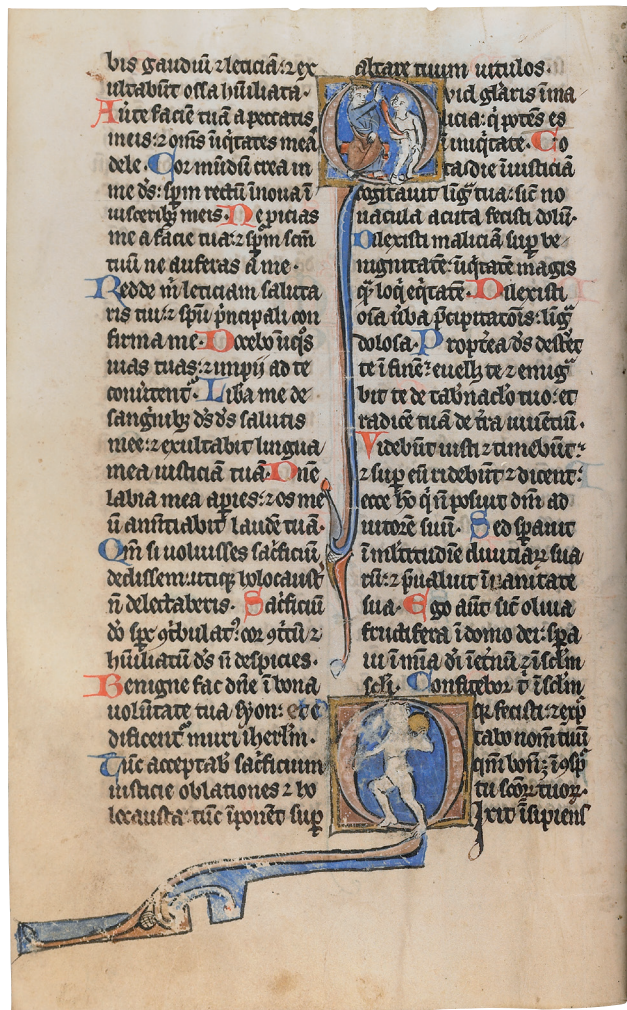 bis gaudiū ⁊ leticiā: ⁊ ex
ultabūt ossa hūiliata.
Aūte faciē tuā a peccatis
meis: ⁊ om̄s īiq̇tates meā
dele. Cor mūdū crea in
me ds̄: sp̄m rectū īnoua ī
uisceribꝫ meis. Ne p̄icias
me a facie tua: ⁊ sp̄m sc̄m
tuū ne auferas a me.
Redde m̄ leticiam saluta
ris tui: ⁊ sp̄u p̄ncipali con
firma me. Docebo īiq̇s
uias tuas: ⁊ impij ad te
conūtent. Liba me de
sanguībꝫ ds̄ ds̄ salutis
mee: ⁊ exultabit lingua
mea iusticiā tuā. Dn̄e
labia mea apies: ⁊ os meū
ānūtiabit laudē tuā.
Qm̄ si uoluisses sac̄ficiū
dedissem: utiqꝫ holocaust̄
n̄ delectaberis. Sac̄ficiū
dō sp̄c ꝯt̄bulatꝰ: cor ꝯt̄tū ⁊
hūiliatū ds̄ n̄ despicies.
Benigne fac dn̄e ī bona
uolūtate tua syon: et e
dificent̄ muri iherlm̄.
Tūc acceptab̄ sac̄ficium
iusticie oblationes ⁊ ho
locausta: tūc īponēt sup̄
altare tuum uitulos.
Quid gl̄aris ī ma
licia: q̇ potēs es
ī iniq̇tate. To
ta die ī iusticiā
cogitauit līḡ tua: sic̄ no
uacula acuta fecisti dolū.
Dilexisti maliciā sup̄ be
nignitatē: īiq̇tatē magis
q̄ loq̇ eq̇tatē. Dilexisti
oīa ūba p̄cipitatōis: līḡ
dolosa. Propt̄ea ds̄ dest̄et
te ī finē: euell̄ te ⁊ emiḡ
bit te de tab̄nac̄lo tuo: et
radicē tuā de t̄ra uiuētiū.
Videbūt iusti ⁊ timebūt:
⁊ sup̄ eū ridebūt ⁊ dicent:
ecce hō q̇ n̄ posuit dm̄ ad
iutorē suū. Sed sp̄auit
ī m̄ltitudīe diuitiaꝝ sua
rū: ⁊ p̄ualuit ī uanitate
sua. Ego aūt sic̄ oliua
fructifera ī domo dei: sp̄a
ui ī mīa dī ī et̄nū ⁊ ī sc̄lm
sc̄li. Confitebor t̄ ī sc̄lm
q̇ fecisti: ⁊ exp̄
tabo nom̄ tuū
qm̄ bonū ꝫ ī ꝯsp̄
tu scōꝝ tuoꝝ.
Dixit īsipiens